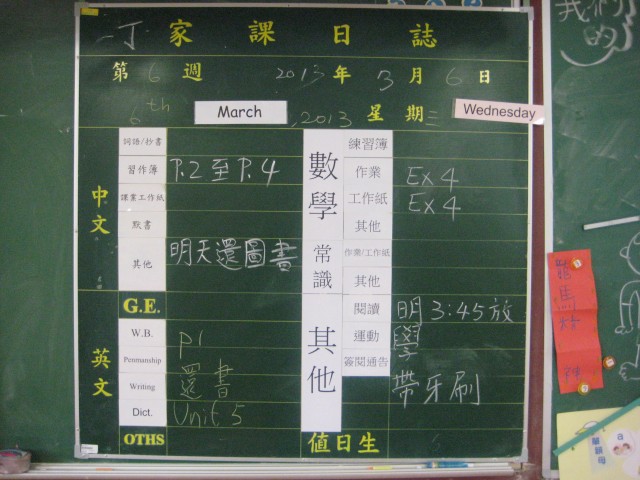 一丁 家課日誌
第 6 週 2013 年 3 月 6 日
6th March, 2013 星期三 Wednesday
中文
詞語/抄書
習作簿 P.2 至 P.4
課業工作紙
默書
其他 明天還圖書
G.E.
英文
W.B. p1
Penmanship
Writing 還書
Dict. Unit 5
OTHS
數學
練習簿
作業 Ex 4
工作紙 Ex 4
其他
常識
作業/工作紙
其他
其他
閱讀 明 3:45 放
運動 學
簽閱通告
帶牙刷
值日生
我們
的